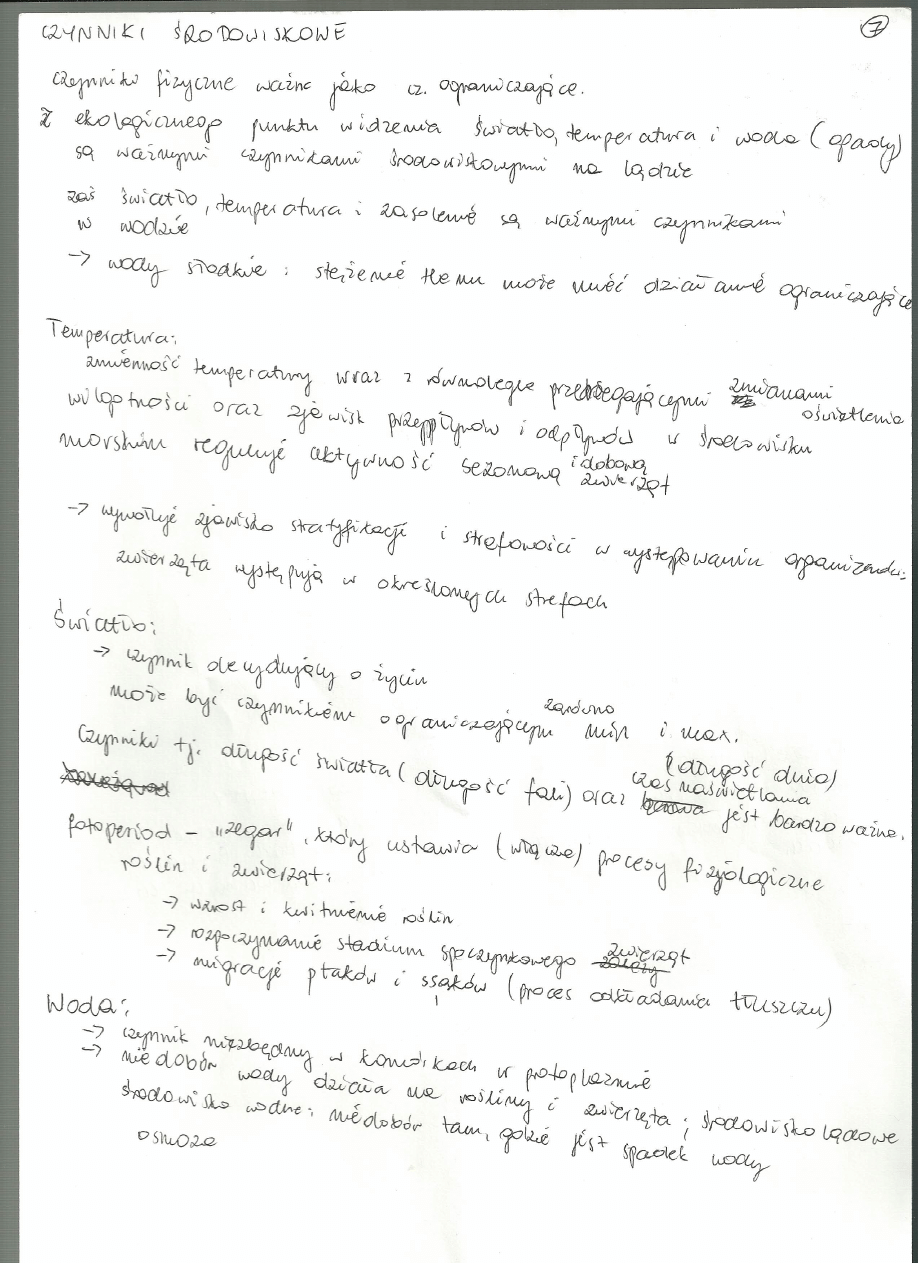 7
CZYNNIKI ŚRODOWISKOWE
Czynniki fizyczne ważne jako cz. ograniczające.
Z ekologicznego punktu widzenia światło, temperatura i woda (opady)
są ważnymi czynnikami środowiskowymi na lądzie
zaś światło, temperatura i zasolenie są ważnymi czynnikami
w wodzie
→ wody słodkie: stężenie tlenu może mieć działanie ograniczające
Temperatura:
zmienność temperatury wraz z równolegle przebiegającymi zmianami oświetlenia
wilgotności oraz zjawisk przypływów i odpływów w środowisku
morskim reguluje aktywność sezonową i dobową zwierząt
→ wywołuje zjawisko stratyfikacji i strefowości w występowaniu organizmów:
zwierzęta występują w określonych strefach
Światło:
→ czynnik decydujący o życiu
może być czynnikiem ograniczającym zarówno min i max.
Czynniki tj. długość światła (długość fali) oraz czas naświetlania (długość dnia) jest bardzo ważne.
fotoperiod - "zegar", który ustawia (włącza) procesy fizjologiczne
roślin i zwierząt:
→ wzrost i kwitnienie roślin
→ rozpoczynanie stadium spoczynkowego zwierząt
→ migracje ptaków i ssaków (proces odkładania tłuszczu)
Woda:
→ czynnik niezbędny w komórkach w protoplazmie
→ niedobór wody działa na rośliny i zwierzęta; środowisko lądowe
środowisko wodne: niedobór tam, gdzie jest spadek wody
osmoza